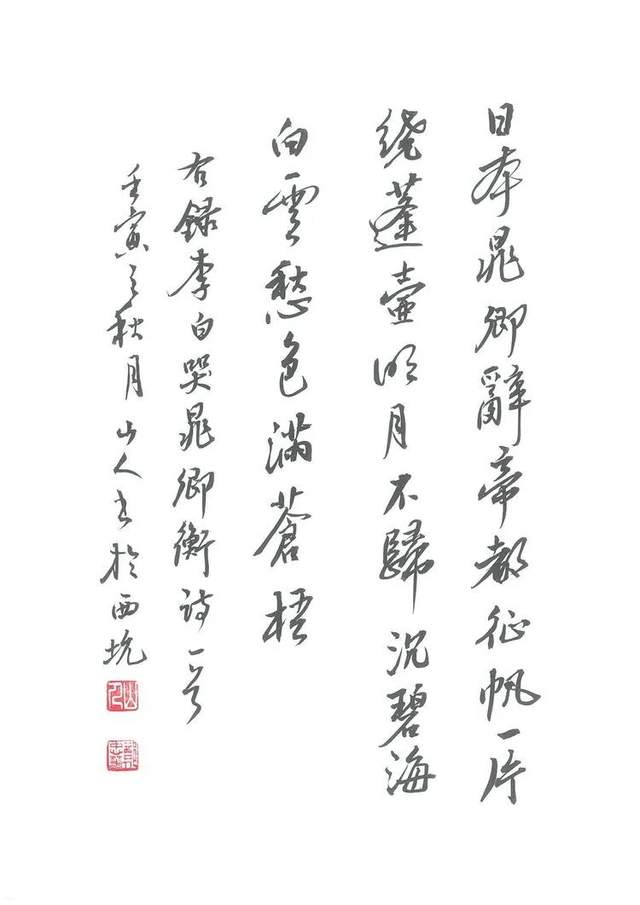 日本晁卿辭帝都征帆一片
繞蓬壺明月不歸沉碧海
白雲愁色滿蒼梧
右録李白哭晁卿衡诗一首
壬寅之秋月山人书於西坑
山人